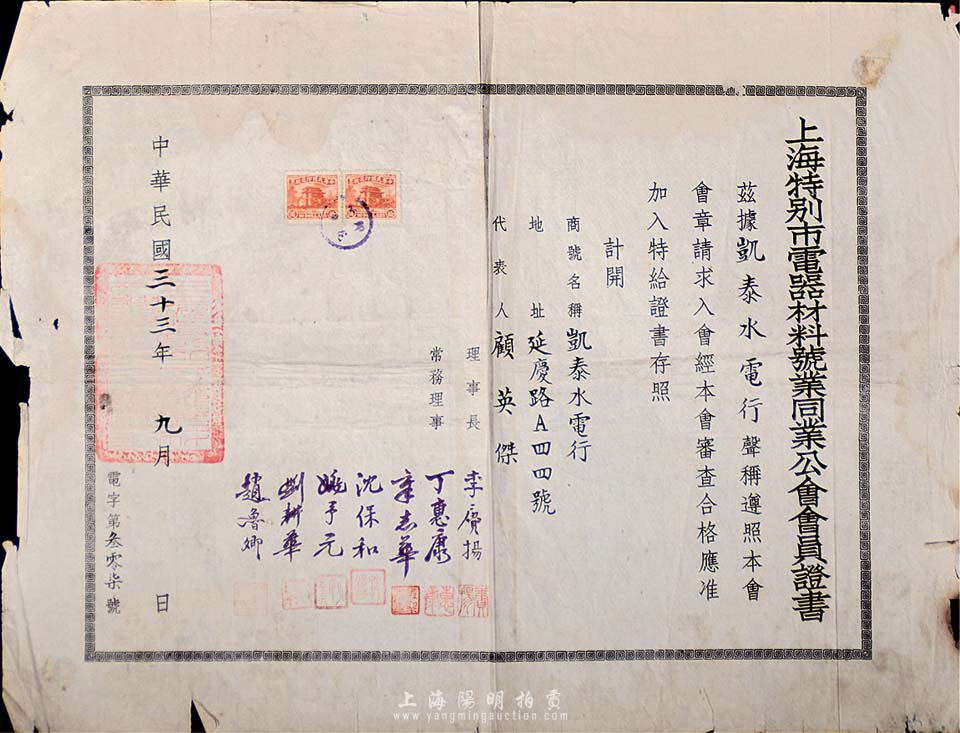 上海特別市電器材料號業同業公會會員證書
茲據凱泰水電行聲稱遵照本會
會章請求入會經本會審查合格應准
加入特給證書存照
計開
商號名稱 凱泰水電行
地址 延慶路A四四號
代表人 顧英傑
理事長 李賡揚
常務理事 丁惠康
章志華
沈保和
姚予元
劉耕華
趙魯卿
中華民國三十三年九月 日
電字第叁零柒號
上海陽明拍賣
www.yangmingauction.com